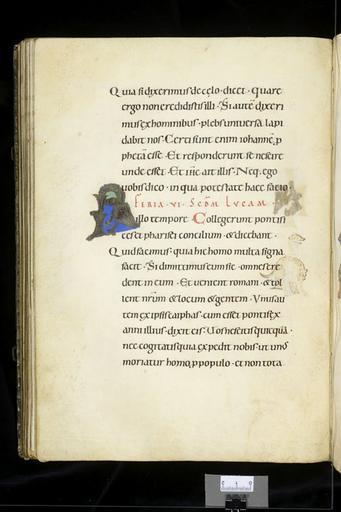 Quia si dixerimus de celo · dicet · quare
ergo non credidistis illi · Si aute͂ dixeri
mus ex hominibus · plebs universa lapi
dabit nos · Certi sunt enim iohanne͂ p
pheta͂ esse · Et responderunt se nescire
unde esset · Et ait illis · Neq· ego
vobis dico · in qua potestate haec facio
FERIA · VI · Scd͂m Lucam
illo tempore · Collegerunt pontifi
ces et pharisei concilium · & dicebant ·
Quid facimus · quia hic homo multa signa
facit · Si dimittimus eum sic · omnes cre
dent in eum · Et venient romani · & tol
lent nr͂m & locum & gentem · Unus au
tem ex ipsis caiphas · cum esset pontifex
anni illius · dixit eis · Vos nescitis quicqua͂ ·
nec cogitatis quia expedit nobis · ut un'
moriatur homo, p populo · et non tota